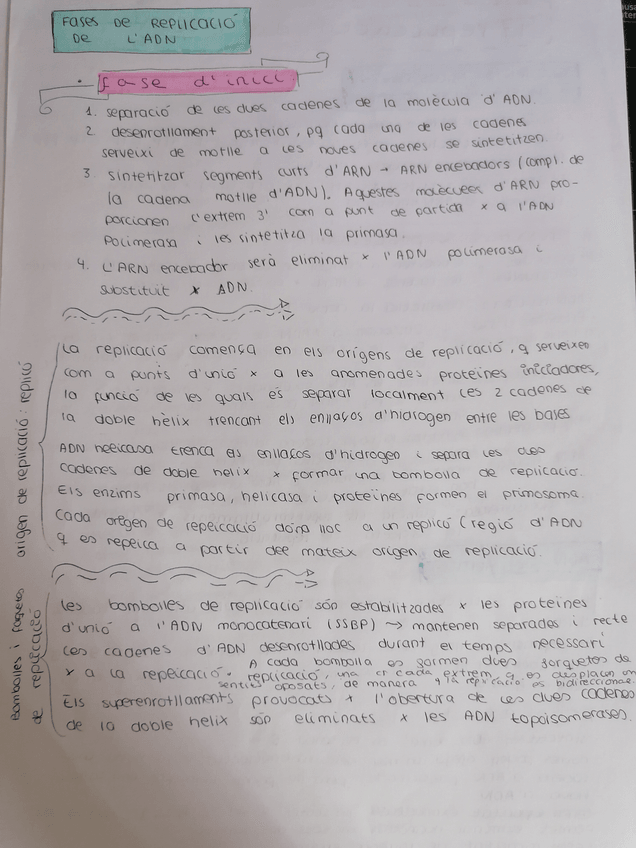 FASES DE REPLICACIÓ
DE L'ADN
fase d'inici
1. separació de les dues cadenes de la molècula d'ADN.
2 desenrotllament posterior, pq cada una de les cadenes
serveixi de motlle a les noves cadenes se sintetitzen.
3 sintetitzar segments curts d'ARN → ARN encebadors (compl. de
la cadena motlle d'ADN). Aquestes molècules d'ARN pro-
porcionen l'extrem 3' com a punt de partida x a l'ADN
Polimerasa i les sintetitza la primasa.
4. L'ARN encebador serà eliminat x l'ADN polimerasa i
substituït x ADN.
origen de replicació: replicó
La replicació comença en els orígens de replicació, q serveixen
com a punts d'unió x a les anomenades proteïnes iniciadores,
la funció de les quals és separar localment les 2 cadenes de
la doble hèlix trencant els enllaços d'hidrogen entre les bases
ADN helicasa trenca els enllaços d'hidrogen i separa les dues
cadenes de doble helix x formar una bombolla de replicació.
Els enzims primasa, helicasa i proteïnes formen el primosoma.
Cada origen de replicació dona lloc a un replicó (regió d'ADN
q es replica a partir del mateix origen de replicació.
Bombolles i forquetes
de replicació
Les bombolles de replicació són estabilitzades x les proteïnes
d'unió a l'ADN monocatenari (SSBP) → mantenen separades i recte
les cadenes d'ADN desenrotllades durant el temps necessari
x a la replicació. A cada bombolla es formen dues forquetes de
replicació, una a cada extrem, q es desplacen en
sentits oposats, de manera q la replicació és bidireccional.
Els superenrotllaments provocats x l'obertura de les dues cadenes
de la doble helix són eliminats x les ADN topoisomerases.